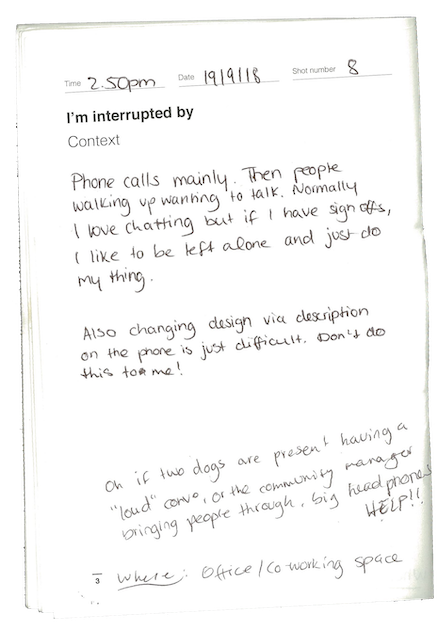 Time 2.50pm Date 19/9/18 Shot number 8
I'm interrupted by
Context
Phone calls mainly. Then people
walking up wanting to talk. Normally
I love chatting but if I have sign offs,
I like to be left alone and just do
my thing.
Also changing design via description
on the phone is just difficult. Don't do
this to me!
Oh if two dogs are present having a
"loud" convo, or the community manager
bringing people through, big headphones
HELP!!
3
Where: Office/Co-working space